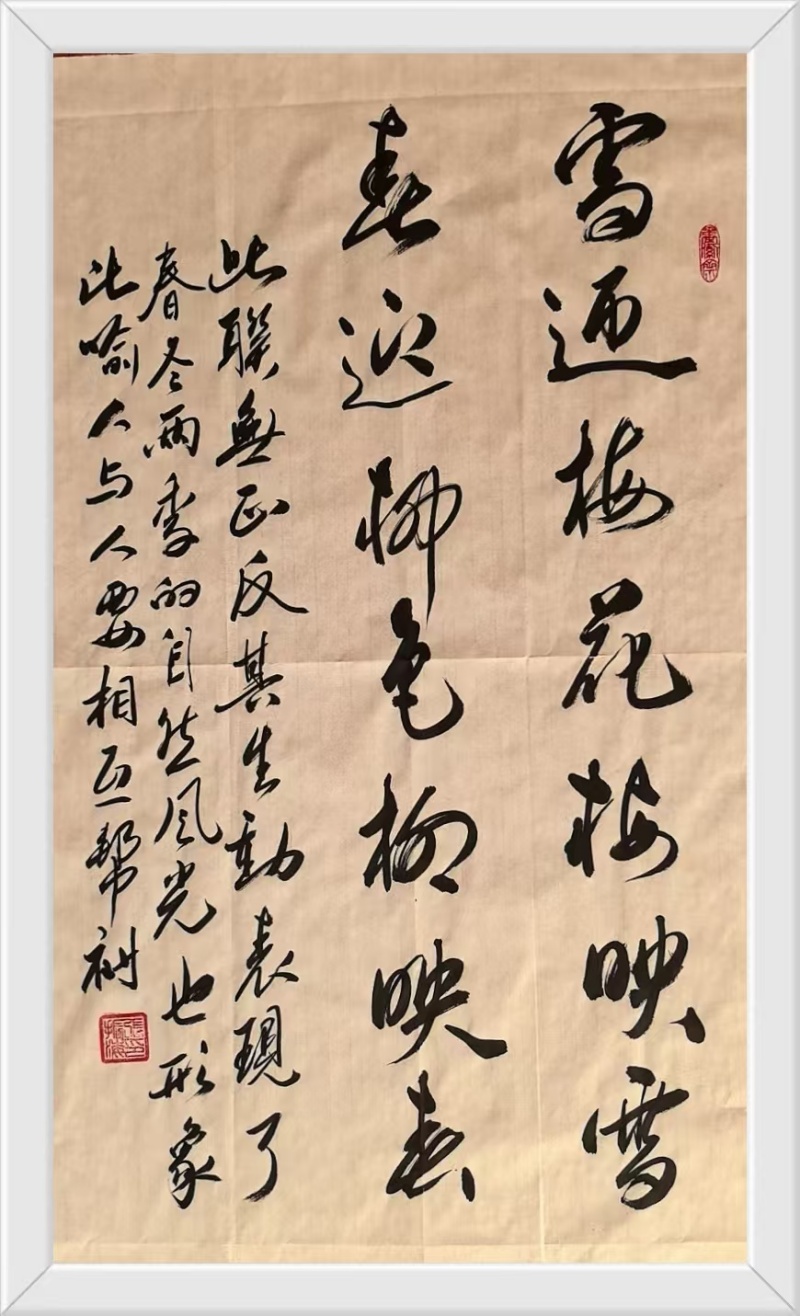 雪迎梅花梅映雪
春迎柳色柳映春
此联無正反其生動表現了
春冬两季的自然风光也形象
比喻人与人要相互帮衬